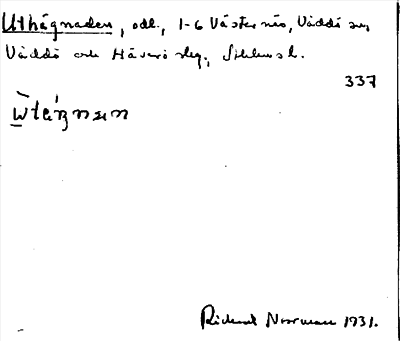 Uthägnaden, odl., 1-6 Västernäs, Väddö sn,
Väddö och Häverö slg., Sthlms l.
337
Richard Norrman 1931.